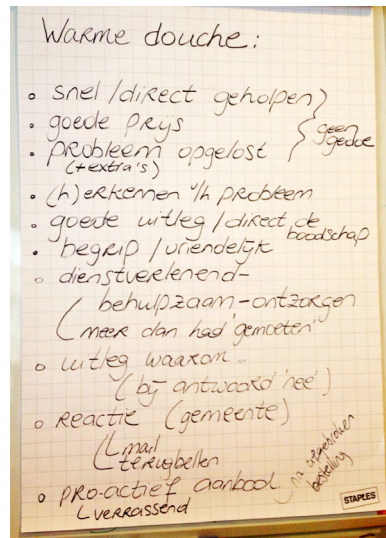 Warme douche:
• snel/direct geholpen
• goede prijs
• probleem opgelost
(+extra's)
geen
gedoe
• (h)erkennen v/h probleem
• goede uitleg/direct de
boodschap
• begrip/vriendelijk
• dienstverlenend-
behulpzaam-ontzorgen
meer dan had 'gemoeten'
• uitleg waarom..
(bij antwoord 'nee')
• Reactie (gemeente)
mail
terugbellen
• pro-actief aanbod
verrassend
na afgebroken
bestelling
STAPLES